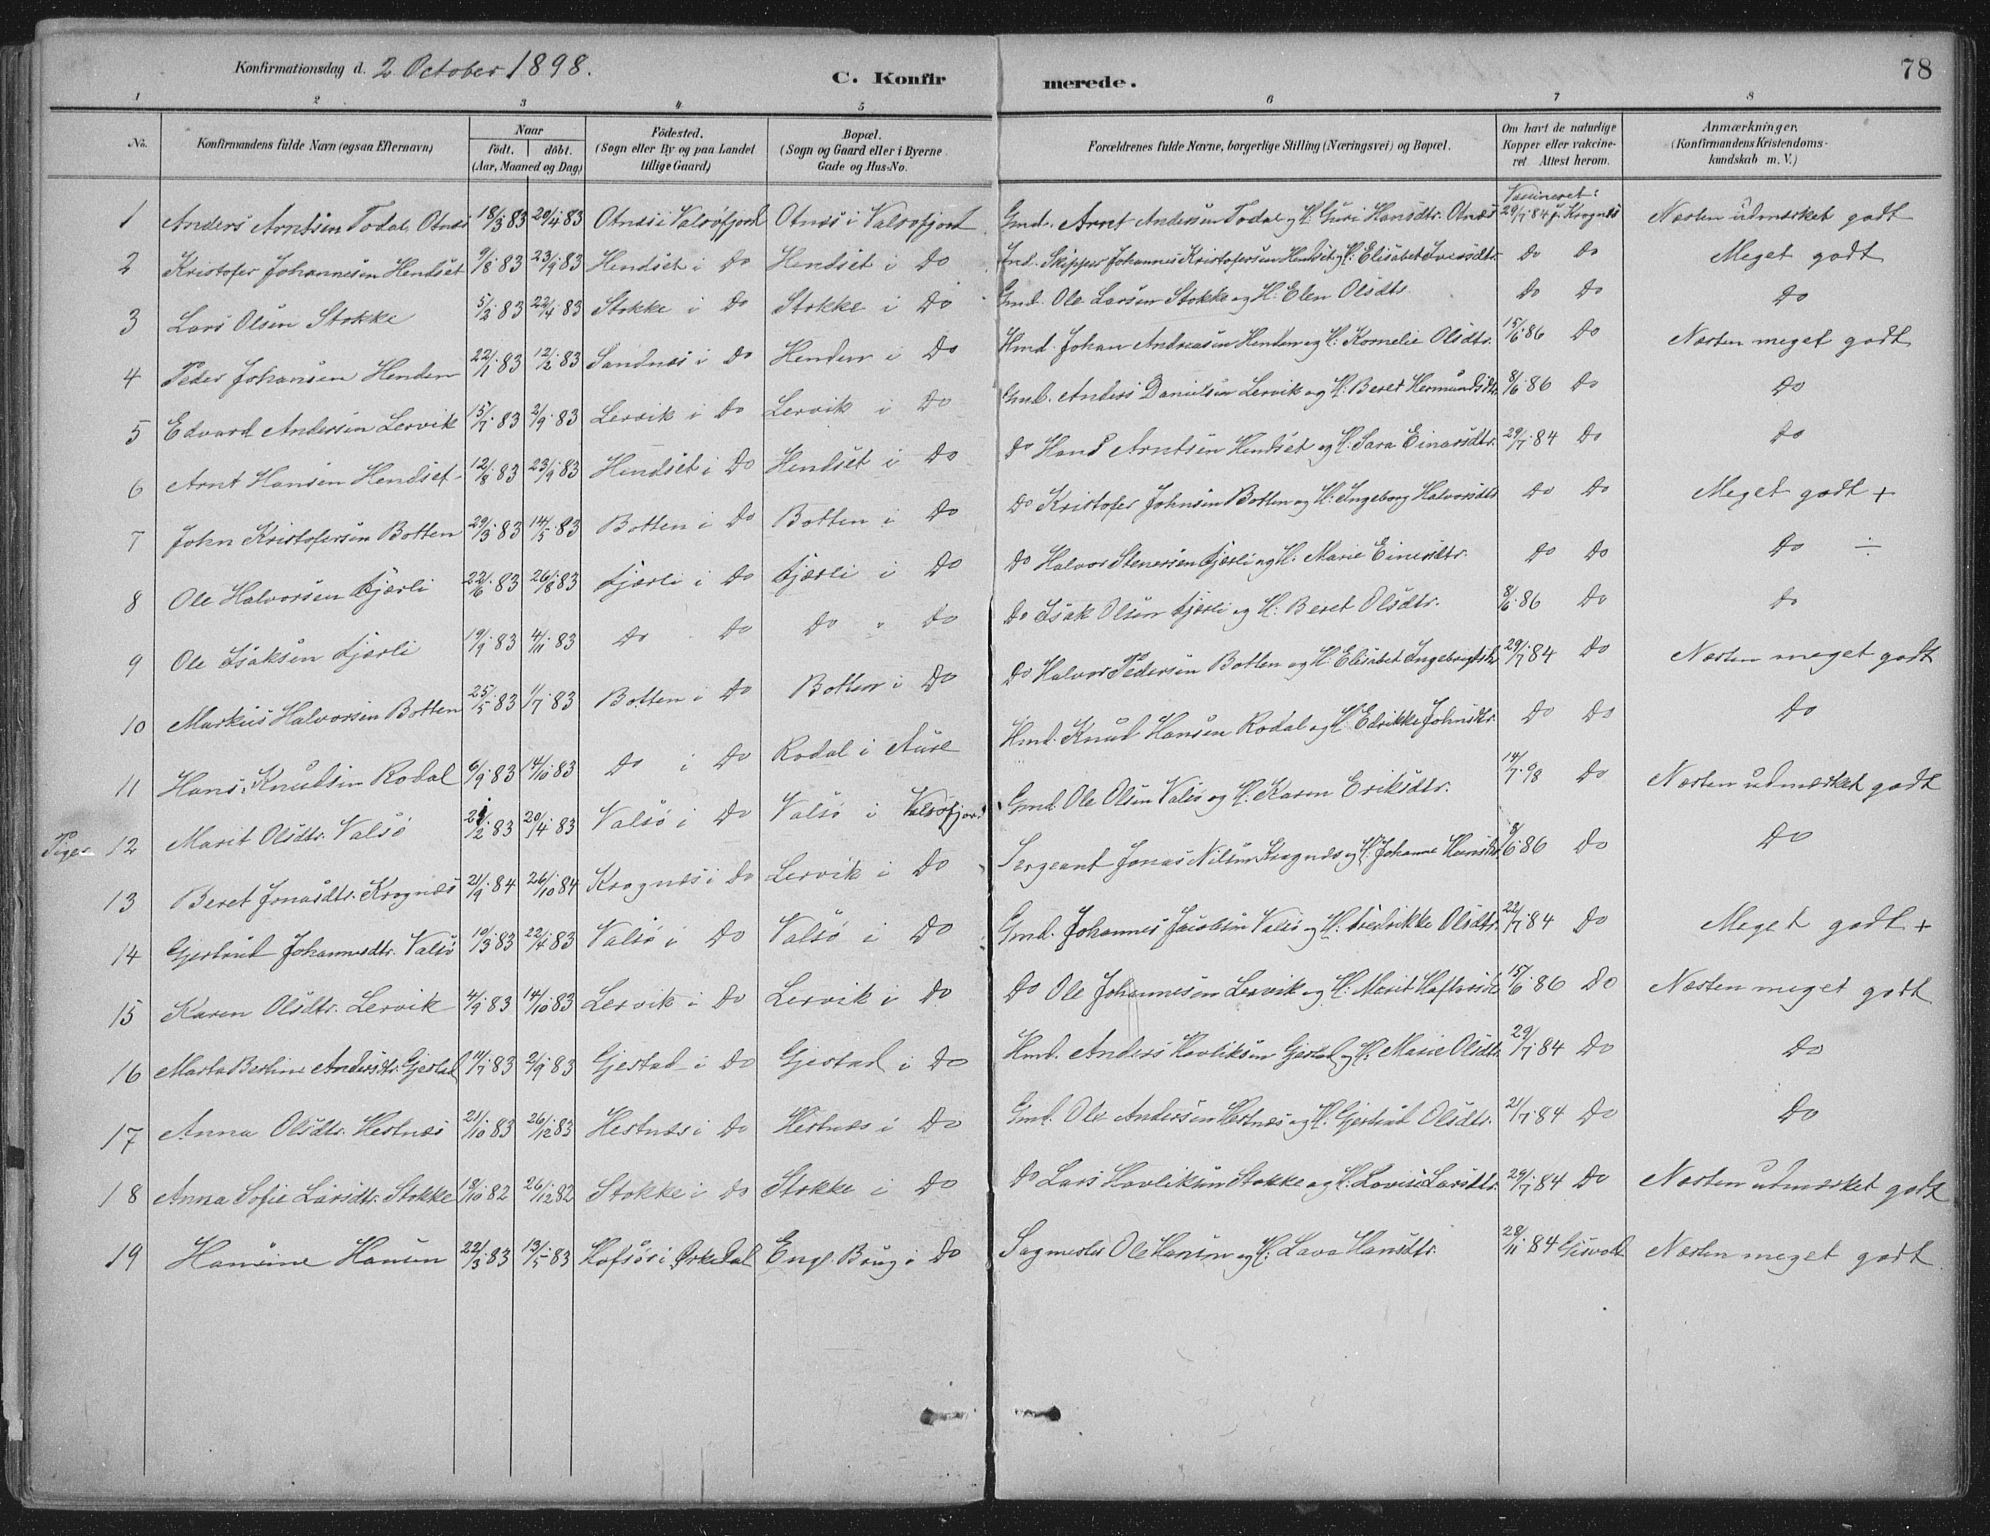 Konfirmationsdag d. 2 October 1898.
C. Konfirmerede.
78
1 2 3 4 5 6 7 8
No.
Konfirmandens fulde Navn (ogsaa Efternavn)
Naar
födt. döbt.
(Aar, Maaned og Dag)
Födested.
(Sogn eller By og paa Landet tillige Gaard)
Bopæl.
(Sogn og Gaard eller i Byerne Gade og Hus-No.
Forældrenes fulde Navne, borgerlige Stilling (Næringsvei) og Bopæl.
Om havt de naturlige Kopper eller vakcineret Attest herom.
Anmærkninger.
(Konfirmandens Kristendomskundskab m. V.)
Vaccineret:
1 Anders Arntsen Todal, Otnæs 18/3 83 20/4 83 Otnæs i Valsøfjord Otnæs i Valsøfjord Gmd. Arnt Andersen Todal og H. Guri Hansdtr. Otnæs 29/7 84 f. Krognæs Næsten udmærket godt
2 Kristofer Johannesen Hendset 9/8 83 23/9 83 Hendset i Do Hendset i Do Ind. Skipper Johannes Kristofersen Hendset og H. Elisabet Iversdtr. Do Do Meget godt
3 Lars Olsen Stokke 5/2 83 22/4 83 Stokke i Do Stokke i Do Gmd. Ole Larsen Stokke og H. Elen Olsdtr. Do Do Do
4 Peder Johansen Henden 22/1 83 12/2 83 Sandnæs i Do Henden i Do Hmd. Johan Andreasen Henden og H. Kornelie Olsdtr. 15/6 86 Do Næsten meget godt
5 Edvard Andersen Lervik 15/7 83 2/9 83 Lervik i Do Lervik i Do Gmd. Anders Danielsen Lervik og H. Beret Hermundsdtr. 8/6 86 Do Do
6 Arnt Hansen Hendset 12/8 83 23/9 83 Hendset i Do Hendset i Do Do Hans Arntsen Hendset og H. Sara Einarsdtr. 29/7 84 Do Do
7 John Kristofersen Botten 29/3 83 14/5 83 Botten i Do Botten i Do Do Kristofer Johnsen Botten og H. Ingeborg Halvorsdtr Do Do Meget godt +
8 Ole Halvorsen Fjærli 22/6 83 26/8 83 Fjærli i Do Fjærli i Do Do Halvor Stenersen Fjærli og H. Marie Einersdtr. Do Do Do ÷
9 Ole Isaksen Fjærli 19/9 83 4/11 83 Do Do Do " Do Do Isak Olsen Fjærli og H. Beret Olsdtr. 8/6 86 Do Do
10 Markus Halvorsen Botten 25/5 83 1/7 83 Botten i Do Botten i Do Do Halvor Pedersen Botten og H. Elisabet Ingebrigtsdtr 29/7 84 Do Næsten meget godt
11 Hans Knudsen Rodal 6/9 83 14/10 83 Do i Do Rodal i Aure Hmd. Knud Hansen Rodal og H. Edrikke Johnsdtr. Do Do Do
Piger 12 Marit Olsdtr. Valsø 2/2 83 20/4 83 Valsø i Do Valsø i Valsøfjord Gmd. Ole Olsen Valsø og H. Karen Eriksdtr. 14/7 98 Do Næsten udmærket godt
13 Beret Jonasdtr. Krognæs 21/9 84 26/10 84 Krognæs i Do Lervik i Do Sergeant Jonas Nilsen Krognæs og H. Johanne Hansdtr 8/6 86 Do Do
14 Gjertrud Johannesdtr. Valsø 10/3 83 22/4 83 Valsø i Do Valsø i Do Gmd. Johannes Jacobsen Valsø og H. Fredrikke Olsdtr. 22/7 84 Do Meget godt +
15 Karen Olsdtr. Lervik 4/9 83 14/10 83 Lervik i Do Lervik i Do Do Ole Johannesen Lervik og H. Marit 15/6 86 Do Næsten meget godt
16 Marta Bertine Andersdtr. Gjestad 14/7 83 2/9 83 Gjestad i Do Gjestad i Do Hmd. Anders Havliksen Gjestad og H. Marie Olsdtr. 29/7 84 Do Do
17 Anna Olsdtr. Hestnæs 21/10 83 26/12 83 Hestnæs i Do Hestnæs i Do Gmd. Ole Andersen Hestnæs og H. Gjertrud Olsdtr. 21/7 84 Do Do
18 Anna Sofie Larsdtr. Stokke 18/10 82 26/12 82 Stokke i Do Stokke i Do Do Lars Havliksen Stokke og H. Lovise Larsdtr. 29/7 84 Do Næsten udmærket godt
19 Hansine Hansen 22/3 83 13/5 83 Hofsøs i Ørkedal Engl. Brug i Do Sagmester Ole Hansen og H. Lava Hansdtr. 28/11 84 Gisvold Næsten meget godt